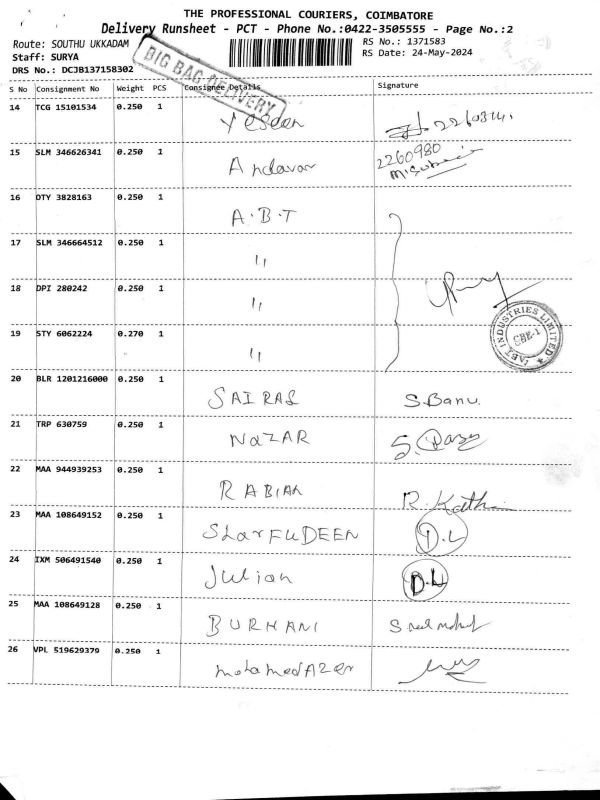 THE PROFESSIONAL COURIERS, COIMBATORE
Delivery Runsheet - PCT - Phone No.:0422-3505555 - Page No.:2
Route: SOUTHU UKKADAM
RS No.: 1371583
Staff: SURYA
RS Date: 24-May-2024
DRS No.: DCJB137158302
BIG BAG DELIVERY
S No Consignment No Weight PCS Consignee Details Signature
14 TCG 15101534 0.250 1 Yesdee 2260314.
15 SLM 346626341 0.250 1 Andavar 2260980
16 OTY 3828163 0.250 1 A.B.T
17 SLM 346664512 0.250 1 "
18 DPI 280242 0.250 1 "
19 STY 6062224 0.270 1 "
INDUSTRIES LIMITED
CBE-1
20 BLR 1201216000 0.250 1 SAIRAS S.Banu.
21 TRP 630759 0.250 1 NaZAR
22 MAA 944939253 0.250 1 RABIAH R.
23 MAA 108649152 0.250 1 SharFUDEEN D.L
24 IXM 506491540 0.250 1 Julian D.L
25 MAA 108649128 0.250 1 BURHANI
26 VPL 519629379 0.250 1 mohamedAzar